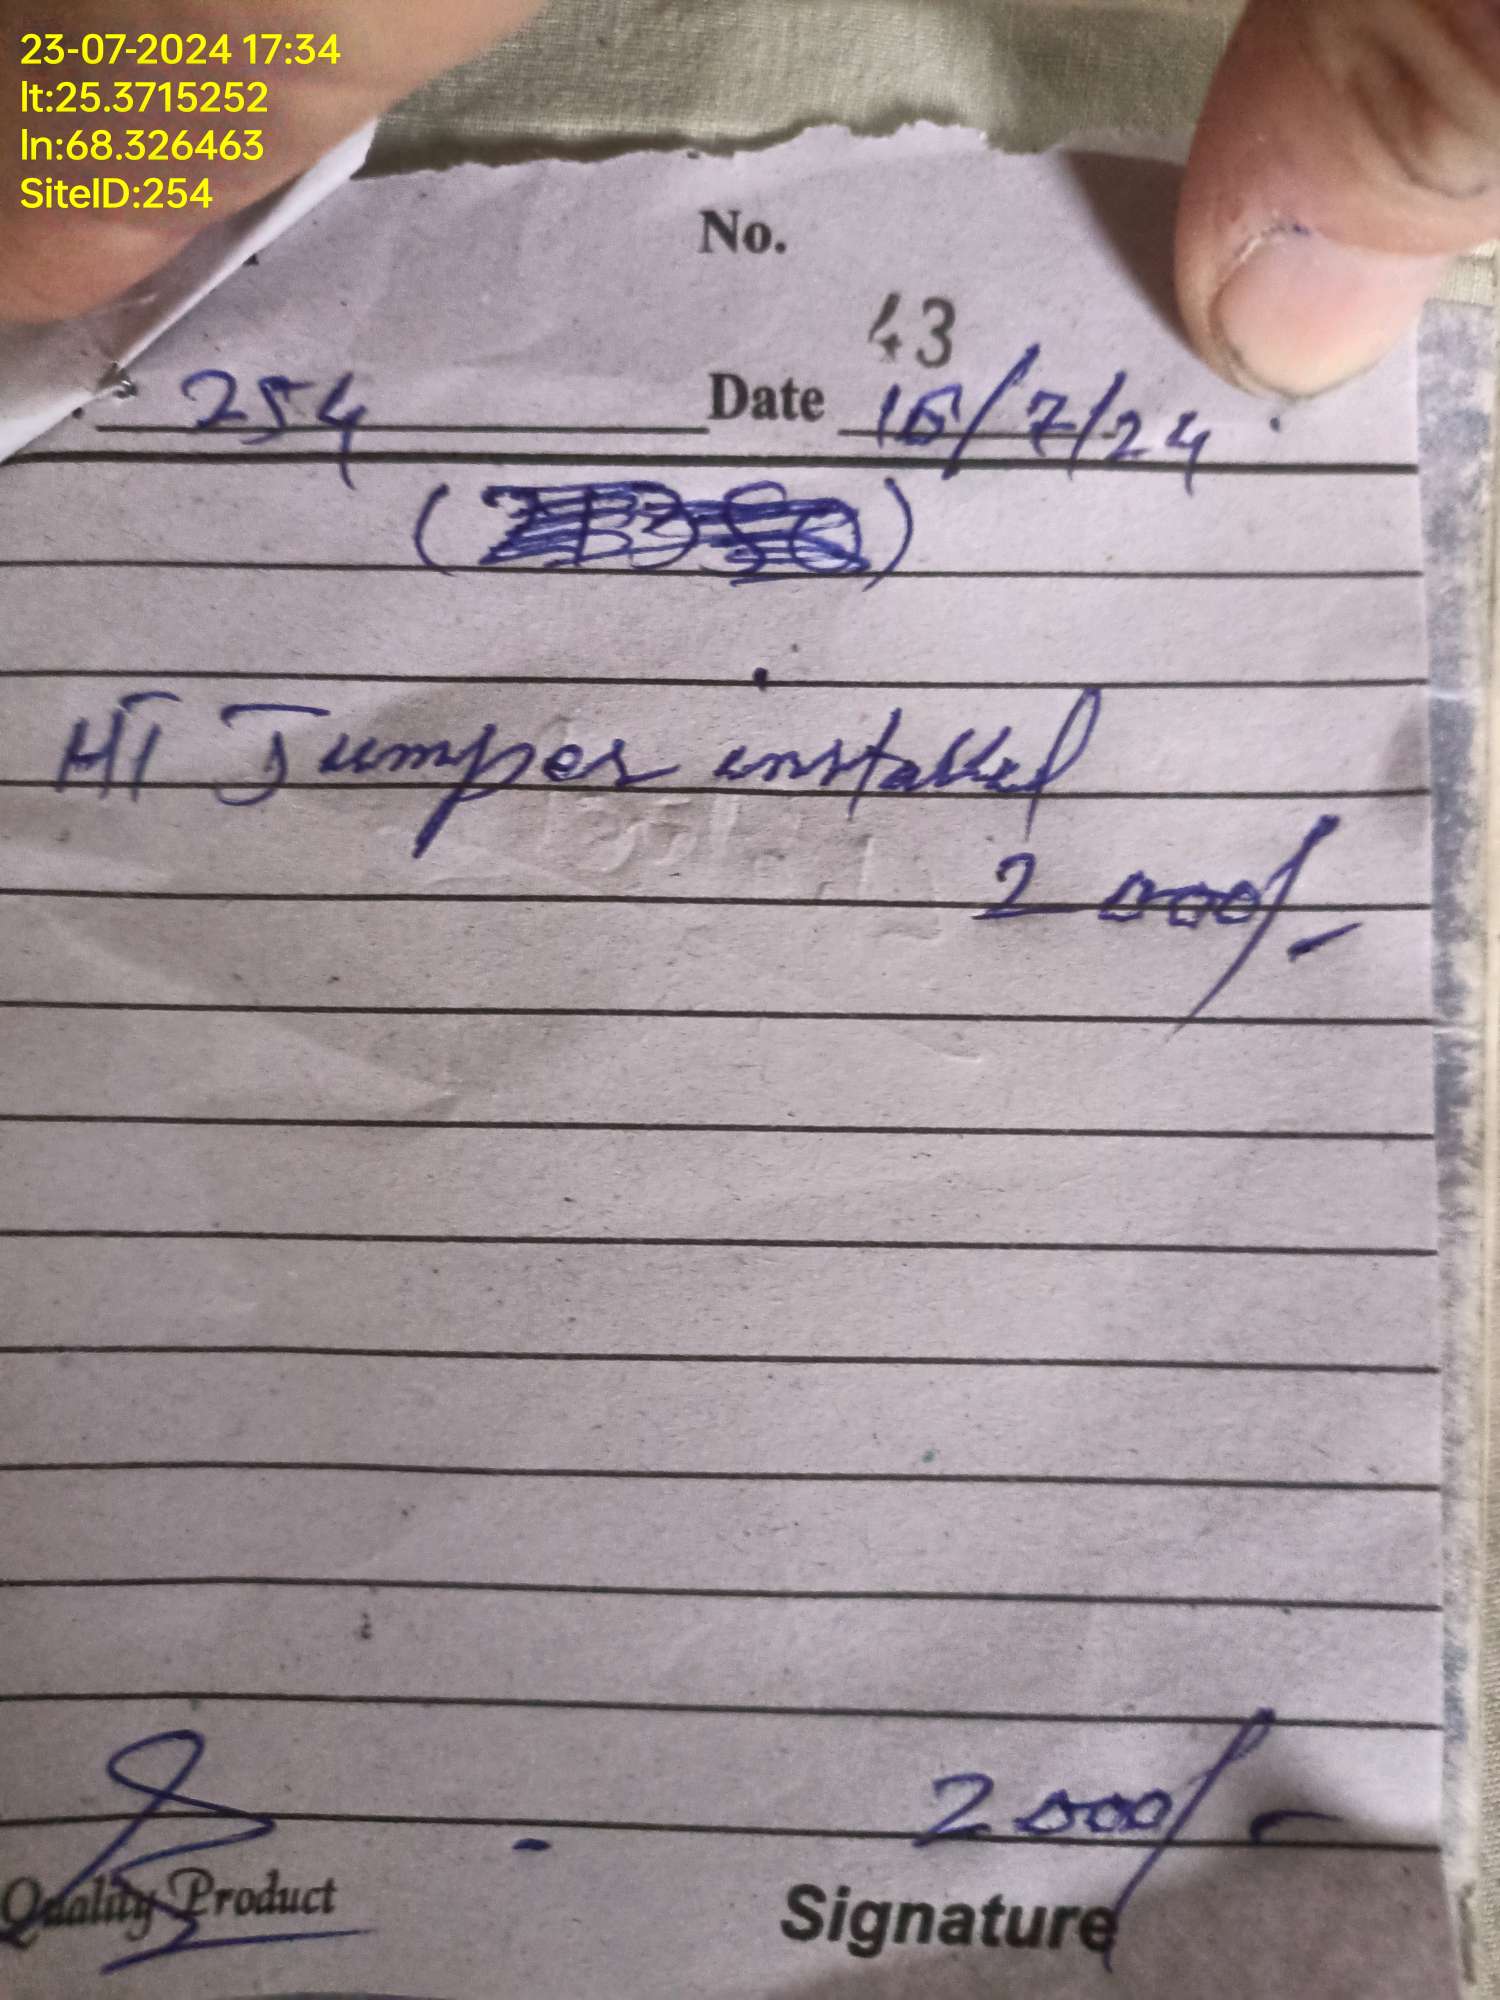 23-07-2024 17:34
lt:25.3715252
ln:68.326463
SiteID:254
No.
43
254 Date 16/7/24
HT Jumper installed
2000/-
2000/-
Quality Product Signature